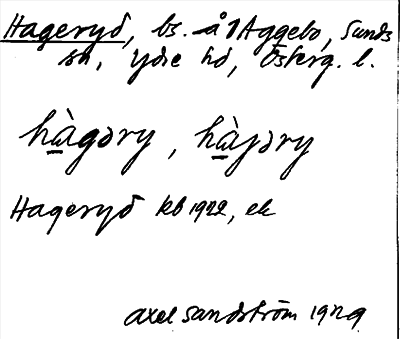 Hageryd, bs. å 1 Aggebo, Sunds
sn, Ydre hd, Österg. l.
hàgəry, hàjəry
Hageryd kb 1922, ek
Axel Sandström 1929